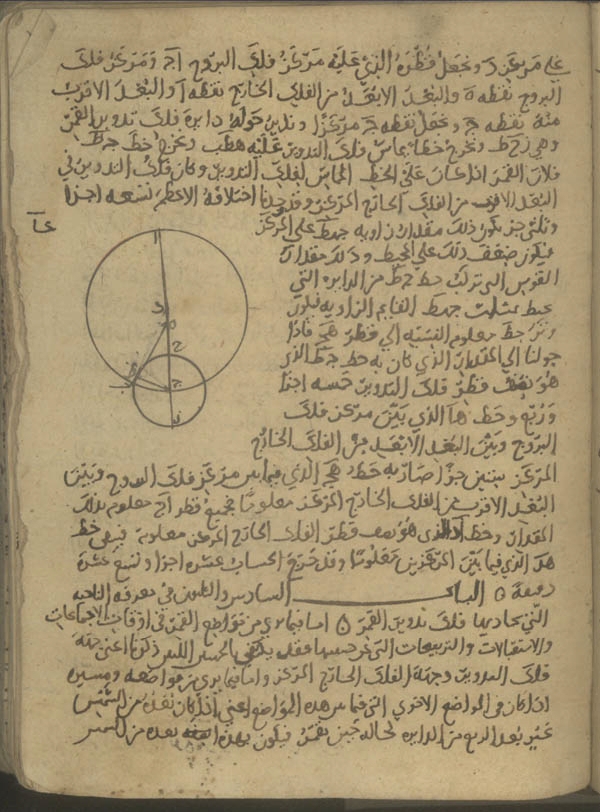 على مركز د ونجعل قطره الذي عليه مركز فلك البروج اج ومركز فلك
البروج نقطه ه والبعد الابعد من الفلك الخارج نقطه ا والبعد الاقرب
منه نقطه ج ونجعل نقطه ج مركزا وندير حوله دايره فلك تدوير القمر
وهي زح ط ونخرج خطا يماس فلك التدوير عليه هطب ونخرج خط جط
فلان القمر اذا كان على الخط المماس لفلك التدوير وكان فلك التدوير في
البعد الاقرب من الفلك الخارج المركز وقد وجدنا اختلافه الاعظم تسعه اجزا
وثلثي جز يكون ذلك مقدار زاويه جهط على المركز
فيكون ضعف ذلك على المحيط وذلك مقدار
القوس التي تركب خط جط من الدايره التي
تحيط بمثلث جهط القايم الزاويه فيكون
وتر جط معلوم النسبه الى قطر هج فاذا
حولنا الى المقدار الذي كان به خط جط الذي
هو نصف قطر فلك التدوير خمسه اجزا
وربع وخط ها الذي بين مركز فلك
البروج وبين البعد الابعد من الفلك الخارج
المركز ستين جزا صار به خط هج الذي فيما بين مركز فلك البروج وبين
البعد الاقرب من الفلك الخارج المركز معلوما فجميع قطر اج معلوم بذلك
المقدار وخط اد الذي هو نصف قطر الفلك الخارج المركز معلوم فيبقى خط
هد الذي فيما بين المركزين معلوما وقد خرج بالحساب عشره اجزا وتسع عشره
دقيقة ه الباب السادس والعشرون في معرفه الناحيه
التي يحاذيها فلك تدوير القمر ه اما فيما يرى من مواضع القمر في اوقات الاجتماعات
والاستقبالات والتربيعات التي فقد يكتفي ذكرنا اعني جهه
فلك التدوير وجهه الفلك الخارج المركز واما فيما يرى من مواضعه ومسيره
اذا كان في المواضع الاخرى التي فيما بين هذه المواضع اعني اذا كان بعده من الشمس
غير بعد الربع من الدايره فيكون بهذا بعده من الشمس
عا
ا
د
ه
ز
ط
ب
ج
ح